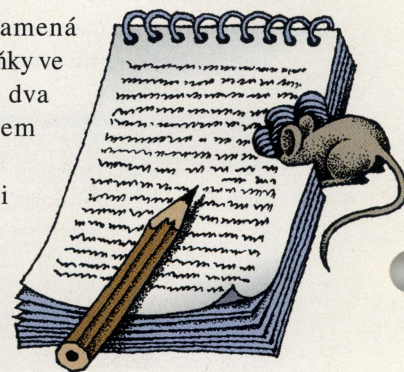 amená
ňky ve
dva
em
i